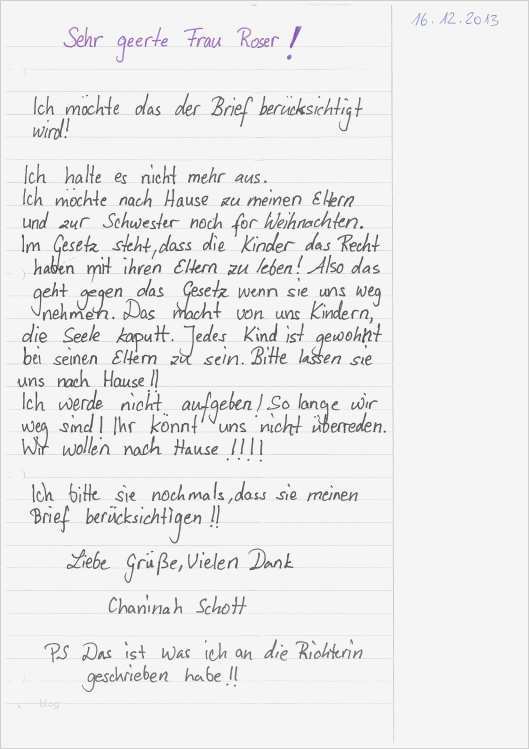 16.12.2013
Sehr geerte Frau Roser!
Ich möchte das der Brief berücksichtigt
wird!
Ich halte es nicht mehr aus.
Ich möchte nach Hause zu meinen Eltern
und zur Schwester noch for Weihnachten.
Im Gesetz steht, dass die Kinder das Recht
haben mit ihren Eltern zu leben! Also das
geht gegen das Gesetz wenn sie uns weg
nehmen. Das macht von uns Kindern,
die Seele kaputt. Jedes Kind ist gewohnt
bei seinen Eltern zu sein. Bitte lassen sie
uns nach Hause!!
Ich werde nicht aufgeben! So lange wir
weg sind! Ihr könnt uns nicht überreden.
Wir wollen nach Hause !!!!
Ich bitte sie nochmals, dass sie meinen
Brief berücksichtigen!!
Liebe Grüße, Vielen Dank
Chaninah Schott
PS Das ist was ich an die Richterin
geschrieben habe!!
blog